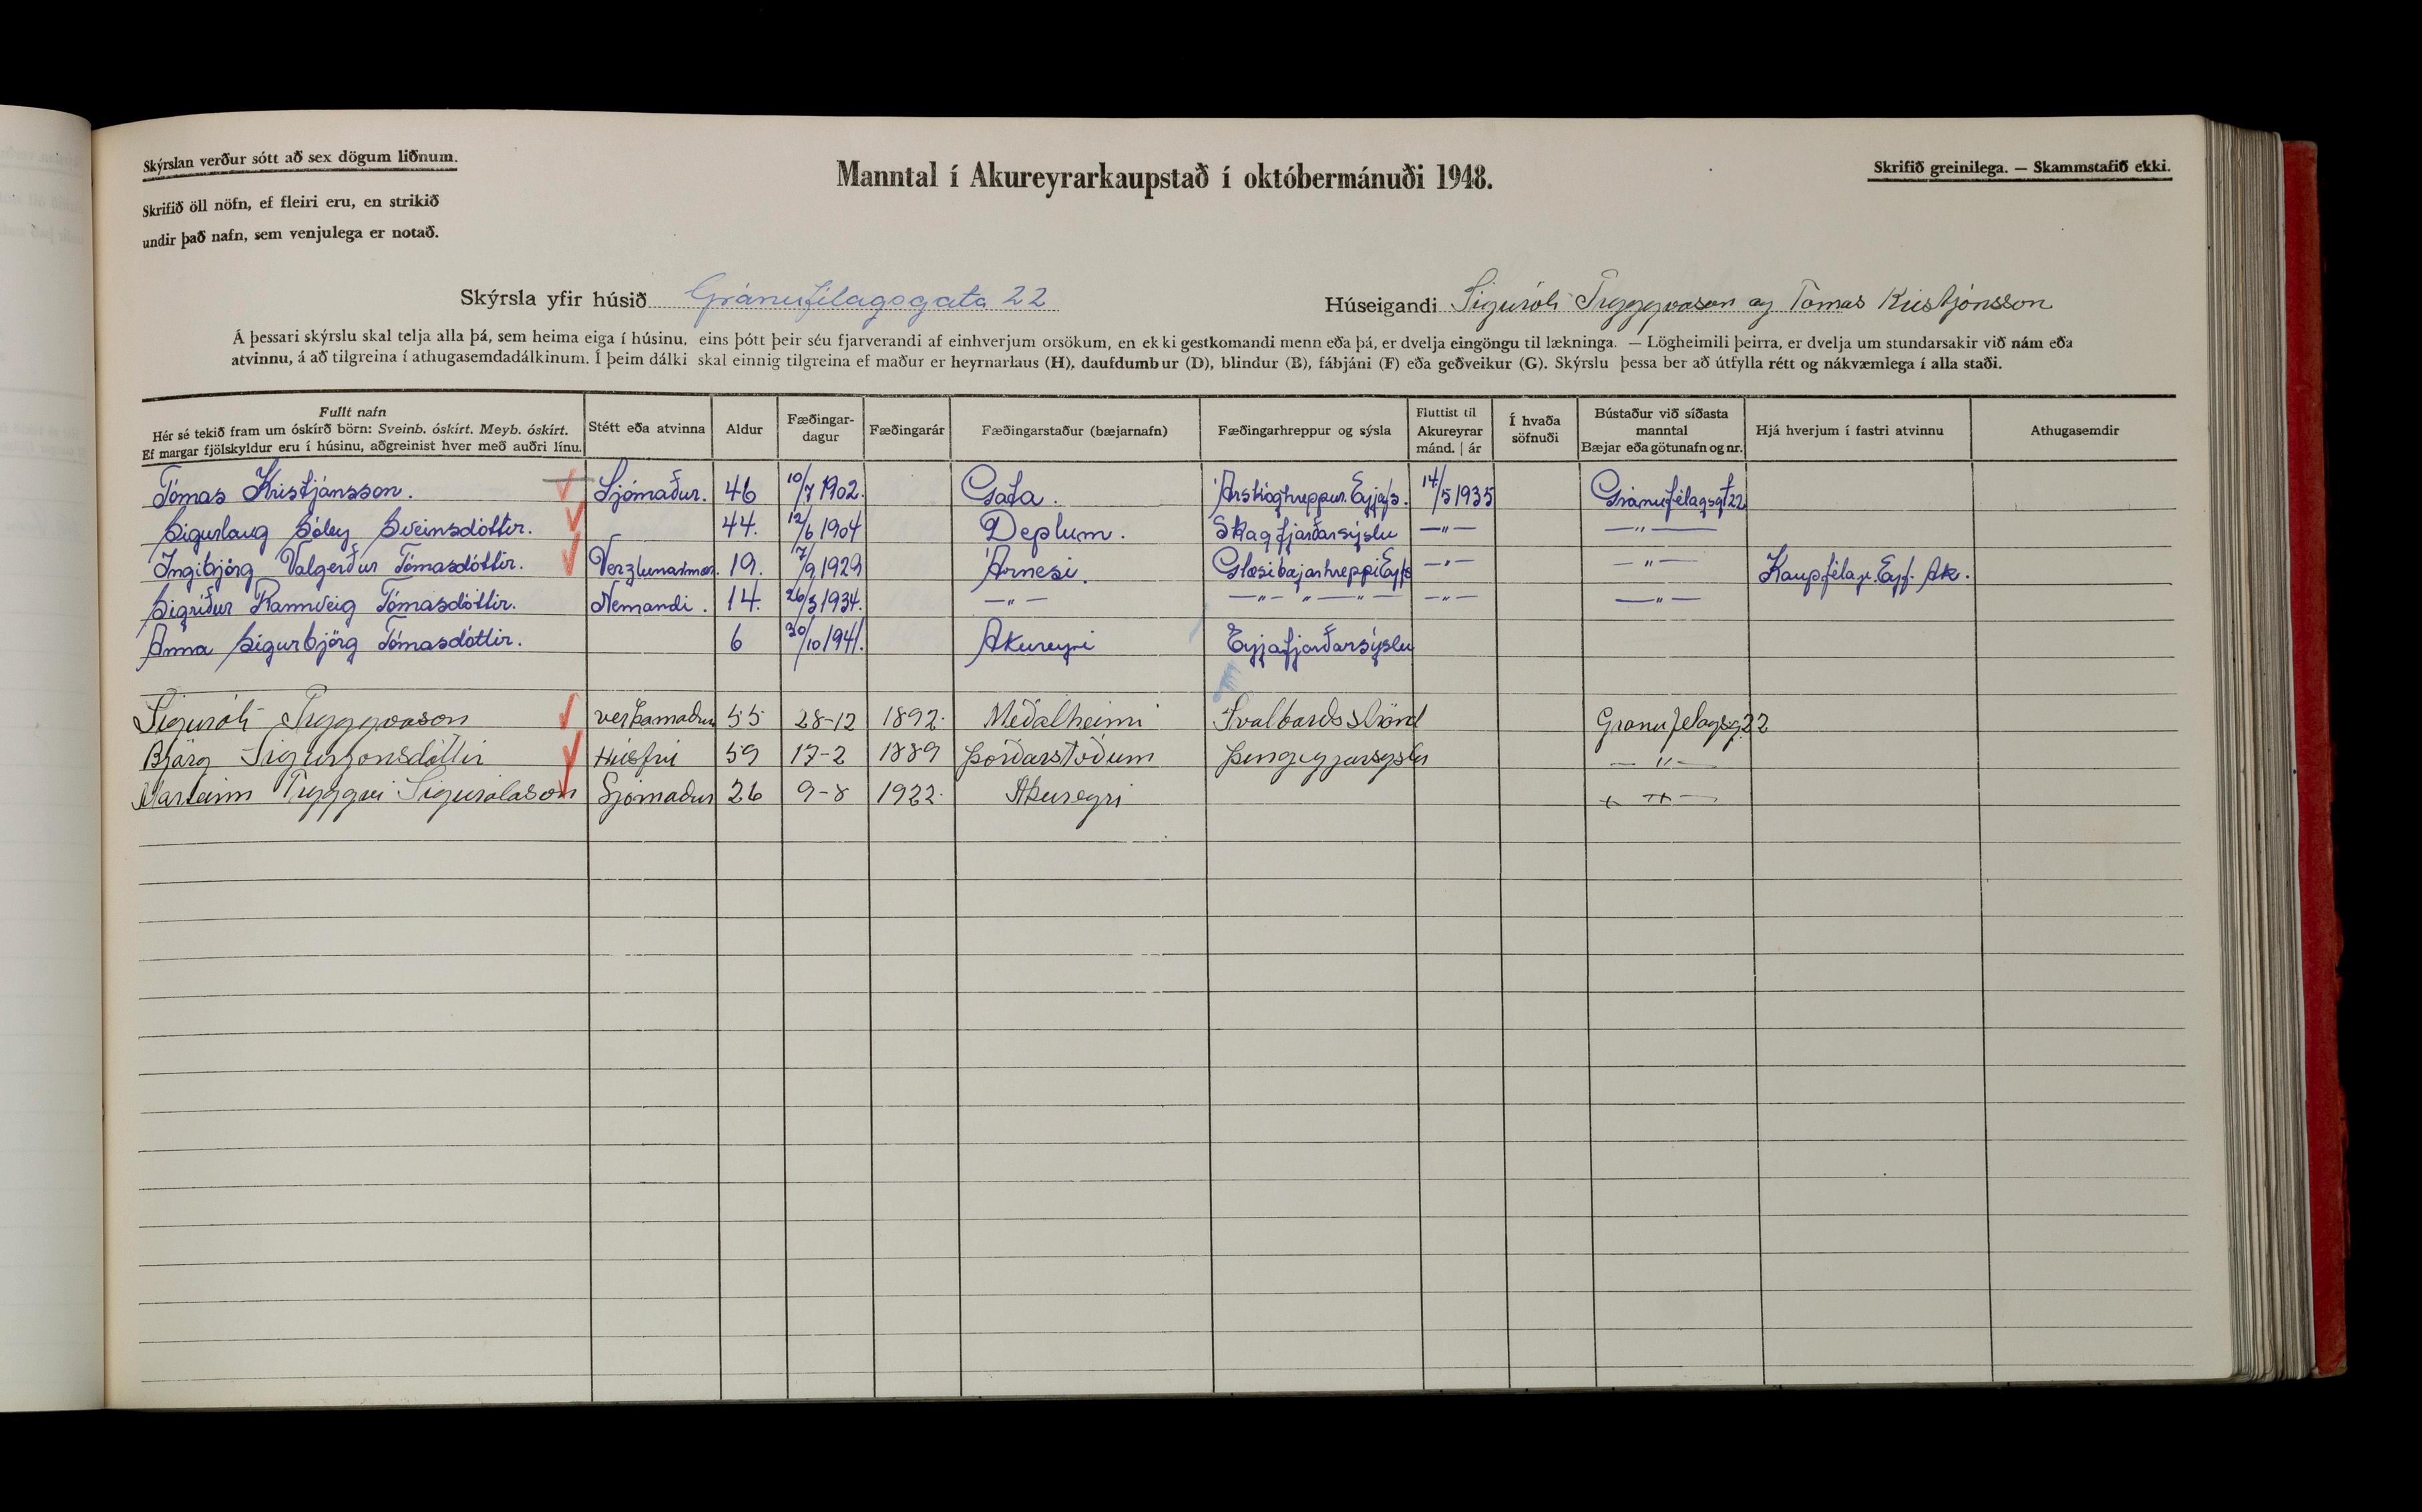 Skýrslan verður sótt að sex dögum liðnum.
Manntal í Akureyrarkaupstað í októbermánuði 1948.
Skrifið greinilega. — Skammstafið ekki.
Skrifið öll nöfn, ef fleiri eru, en strikið
undir það nafn, sem venjulega er notað.
Skýrsla yfir húsið Gránufélagsgata 22
Húseigandi Siguróli Tryggvason og Tómas Kristjánsson
Á þessari skýrslu skal telja alla þá, sem heima eiga í húsinu, eins þótt þeir séu fjarverandi af einhverjum orsökum, en ekki gestkomandi menn eða þá, er dvelja eingöngu til lækninga. — Lögheimili þeirra, er dvelja um stundarsakir við nám eða
atvinnu, á að tilgreina í athugasemdadálkinum. Í þeim dálki skal einnig tilgreina ef maður er heyrnarlaus (H), daufdumbur (D), blindur (B), fábjáni (F) eða geðveikur (G). Skýrslu þessa ber að útfylla rétt og nákvæmlega í alla staði.
Fullt nafn
Hér sé tekið fram um óskírð börn: Sveinb. óskírt. Meyb. óskírt.
Ef margar fjölskyldur eru í húsinu, aðgreinist hver með auðri línu.
Stétt eða atvinna
Aldur
Fæðingar-
dagur
Fæðingarár
Fæðingarstaður (bæjarnafn)
Fæðingarhreppur og sýsla
Fluttist til
Akureyrar
mánd. | ár
Í hvaða
söfnuði
Bústaður við síðasta
manntal
Bæjar eða götunafn og nr.
Hjá hverjum í fastri atvinnu
Athugasemdir
Tómas Kristjánsson. Sjómaður. 46 10/7 1902. Gata. Árskóghreppur. Eyjafs. 14/5 1935 Gránufélagsgt 22
Sigurlaug Sóley Sveinsdóttir. 44. 12/6 1904 Deplum. Skagfjarðarsýslu —"— —"—
Ingibjörg Valgerður Tómasdóttir. Verzlunarmær. 19. 7/9 1929 Árnesi. Glæsibæjarhreppi Eyjfs —"— —"— Kaupfélagi. Eyf. Ak.
Sigríður Rannveig Tómasdóttir. Nemandi. 14. 26/3 1934. —"— —"— "—"— —"— —"—
Anna Sigurbjörg Tómasdóttir. 6 30/10 1941. Akureyri Eyjafjarðarsýslu
Siguróli Tryggvason verkamaður 55 28-12 1892. Meðalheimi Svalbardsströnd Granufelagsg. 22
Björg Sigurjonsdóttir Húsfrú 59 17-2 1889 Þórðarstöðum Þingeyjarsyslu — " —
Marteinn Tryggvi Sigurólason Sjómaður 26 9-8 1922. Akureyri